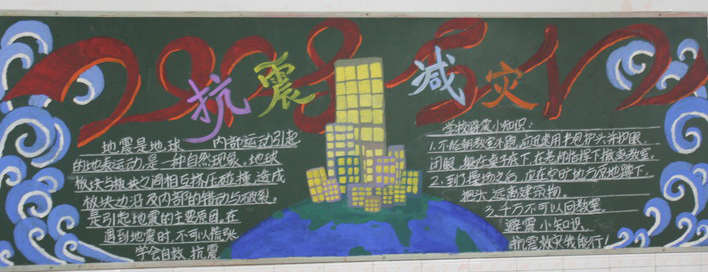 2008 5 12
抗震 减灾
地震是地球 内部运动引起
的地表运动,是一种自然现象,地球
板块与板块之间相互挤压碰撞,造成
板块边沿及内部的错动与破裂,
是引起地震的主要原因,在
遇到地震时,不可以慌张
学会自救 抗震
学校避震小知识:
1.不能朝教室外跑,应迅速用书包护头并抱头、
闭眼、躲在桌子底下,在老师指挥下撤离教室。
2.到了操场之后,应在空旷地方原地蹲下,
抱头,远离建筑物。
3.千万不可以回教室。
避震小知识,
抗震救灾我能行!